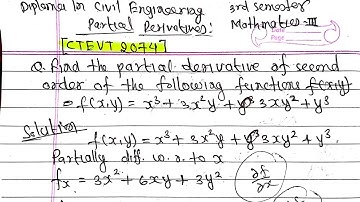 Diploma In Civil Engineering 3rd semester
Partial Derivatives: Mathematics-III
[CTEVT 2074]
Q. Find the partial derivative of second
order of the following functions f(x,y)
= f(x,y) = x³ + 3x²y + 3xy² + y³
Solution f(x,y) = x³ + 3x²y + 3xy² + y³.
Partially diff. w. r. to x
fx = 3x² + 6xy + 3y² ∂f/∂x